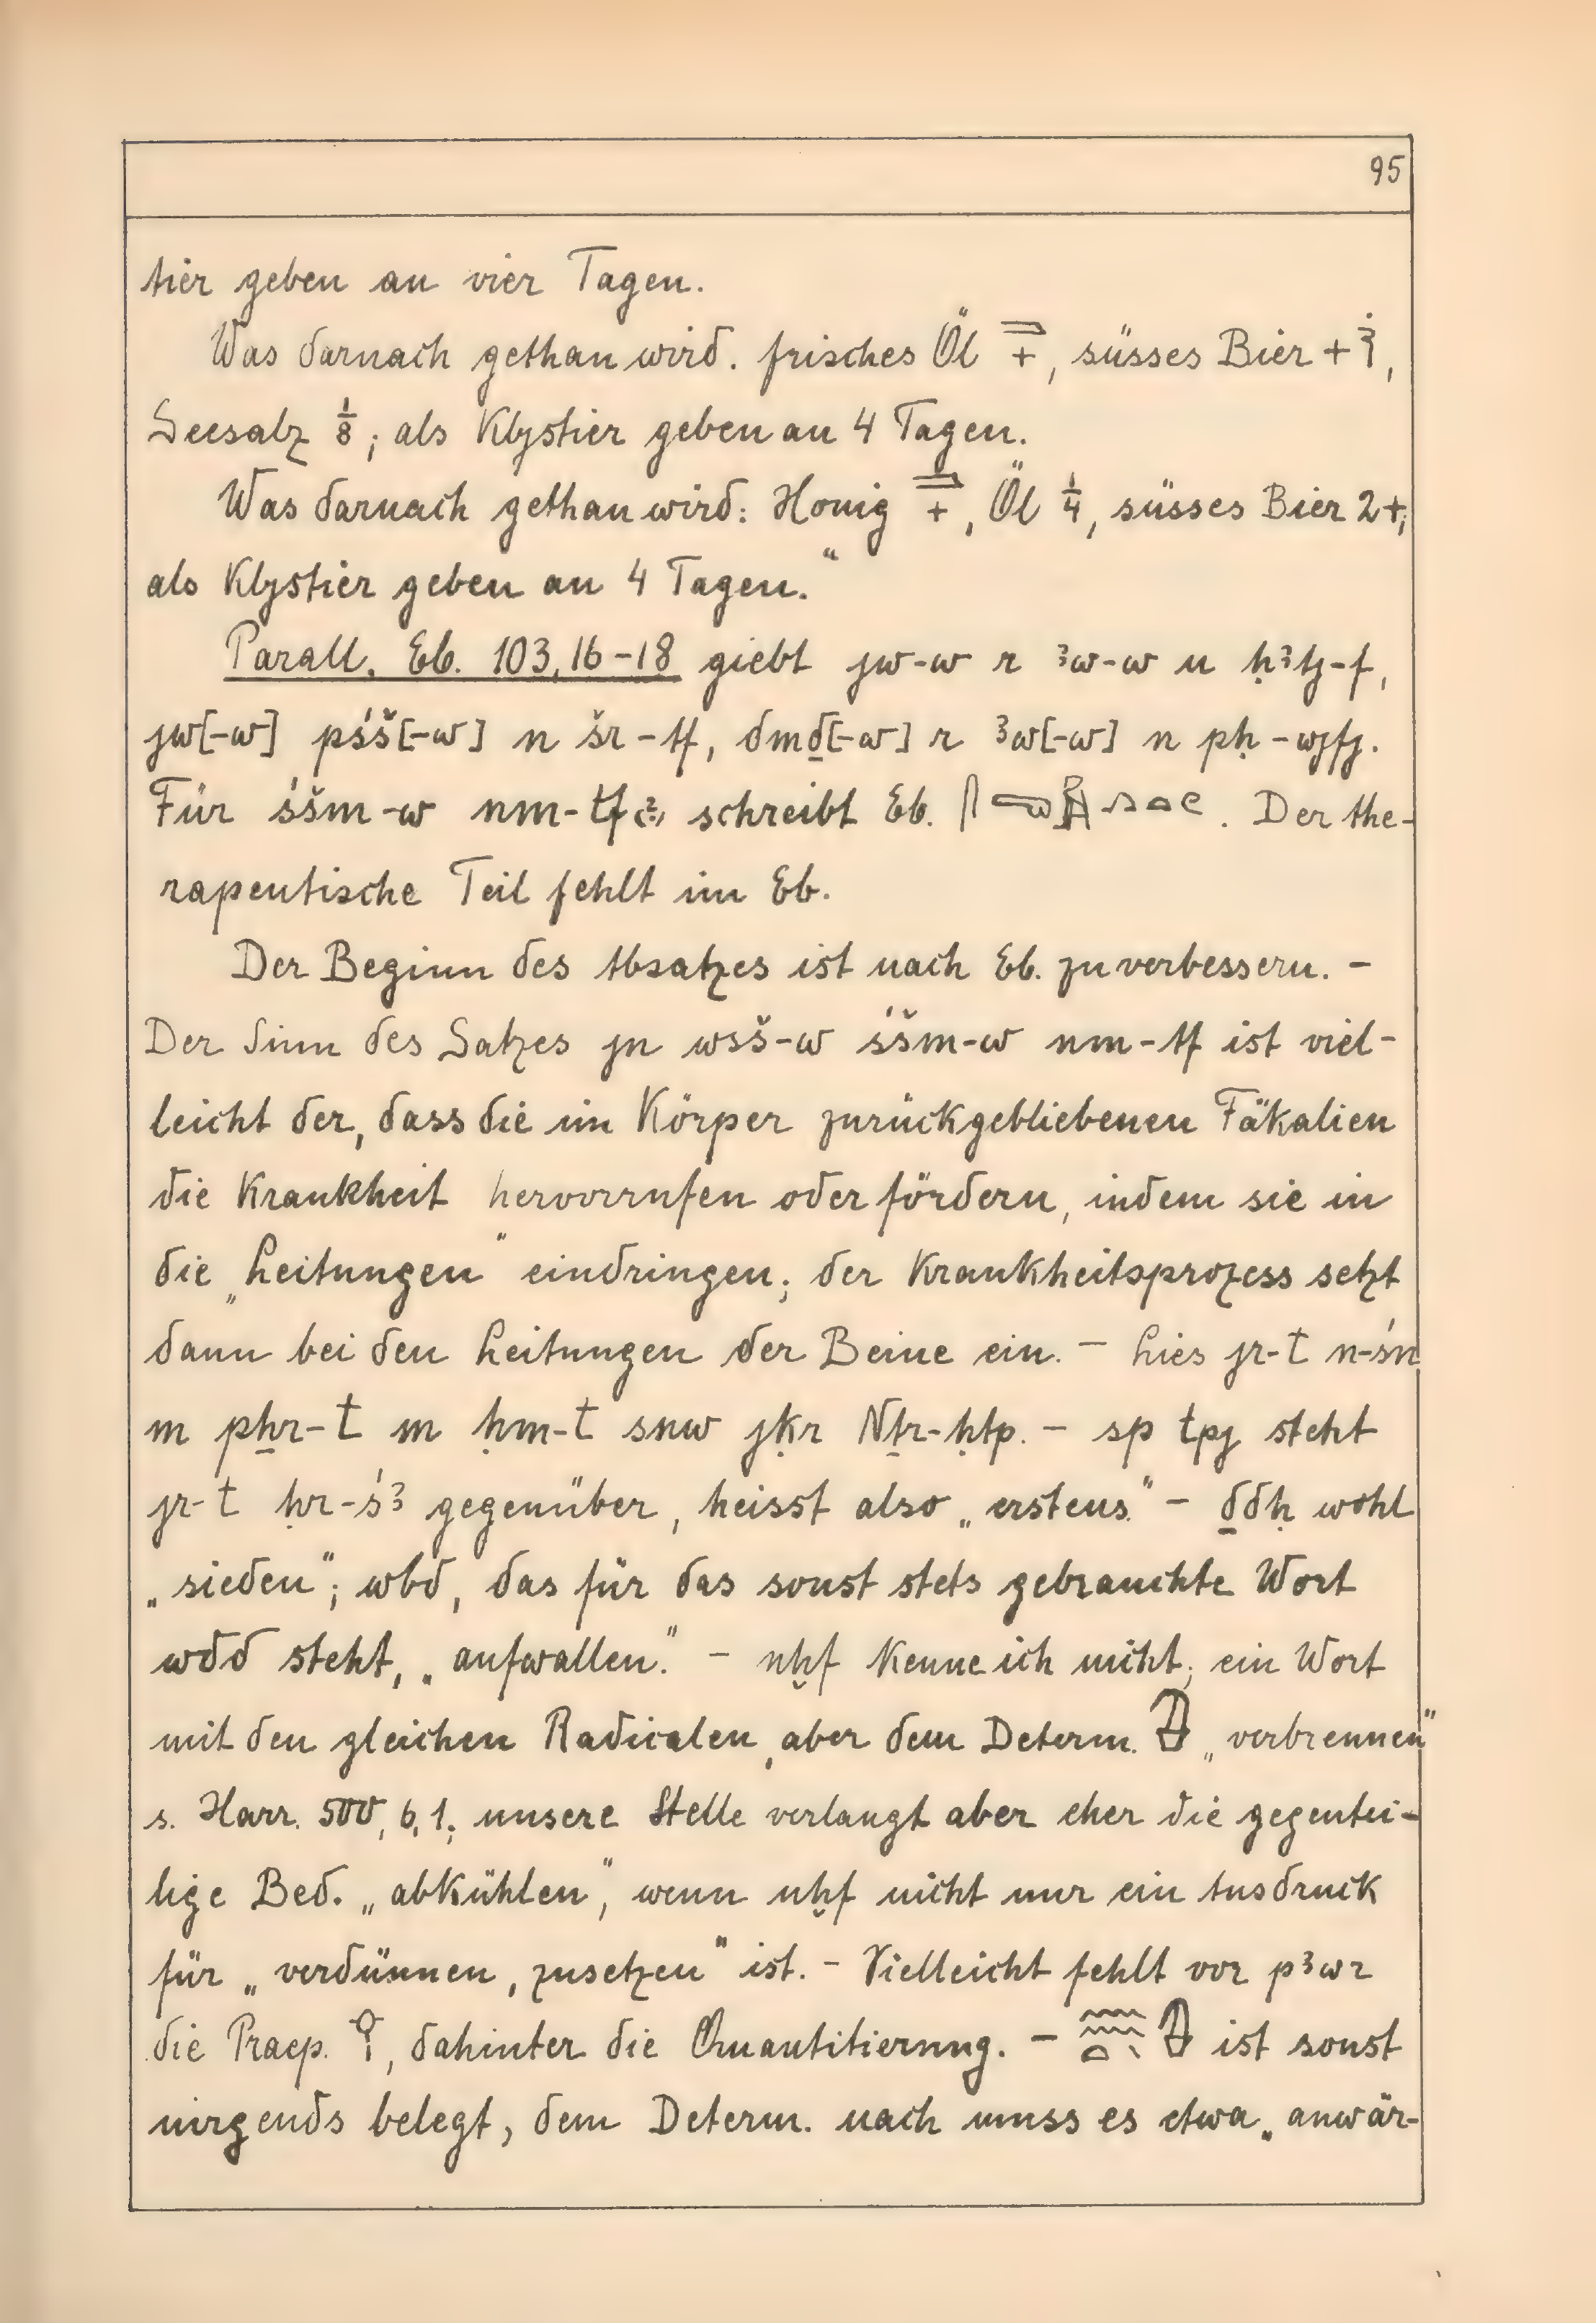 95
tier geben an vier Tagen.
Was darnach gethan wird. frisches Öl +, süsses Bier +
Seesalz 1/8; als Klystier geben an 4 Tagen.
Was darnach gethan wird: Honig +, Öl 1/4, süsses Bier 2+;
als Klystier geben an 4 Tagen."
Parall. Eb. 103,16-18 giebt jw-w r ꜣw-w n ḥꜣtj-f,
jw[-w] pśš[-w] n šr-tf, dmḏ[-w] r ꜣw[-w] n pḥ-wjfj.
Für śšm-w nm-tf schreibt Eb. Der the-
rapeutische Teil fehlt im Eb.
Der Beginn des Absatzes ist nach Eb. zu verbessern. -
Der Sinn des Satzes jn wsš-w śšm-w nm-tf ist viel-
leicht der, dass die im Körper zurückgebliebenen Fäkalien
die Krankheit hervorrufen oder fördern, indem sie in
die „Leitungen" eindringen; der Krankheitsprozess setzt
dann bei den Leitungen der Beine ein. - Lies jr-t n-śn
m pẖr-t m ḥm-t snw jḳr Nṯr-ḥtp. - sp tpj steht
jr-t ḥr-śꜣ gegenüber, heisst also „erstens." - ḏdḥ wohl
„sieden"; wbd, das für das sonst stets gebrauchte Wort
wdd steht, „aufwallen." - nḫf kenne ich nicht; ein Wort
mit den gleichen Radicalen, aber dem Determ. „verbrennen"
s. Harr. 500, 6, 1; unsere Stelle verlangt aber eher die gegentei-
lige Bed. „abkühlen", wenn nḫf nicht nur ein Ausdruck
für „verdünnen, zusetzen" ist. - Vielleicht fehlt vor pꜣwr
die Praep. 𓁷, dahinter die Quantitierung. - ist sonst
nirgends belegt, dem Determ. nach muss es etwa „anwär-